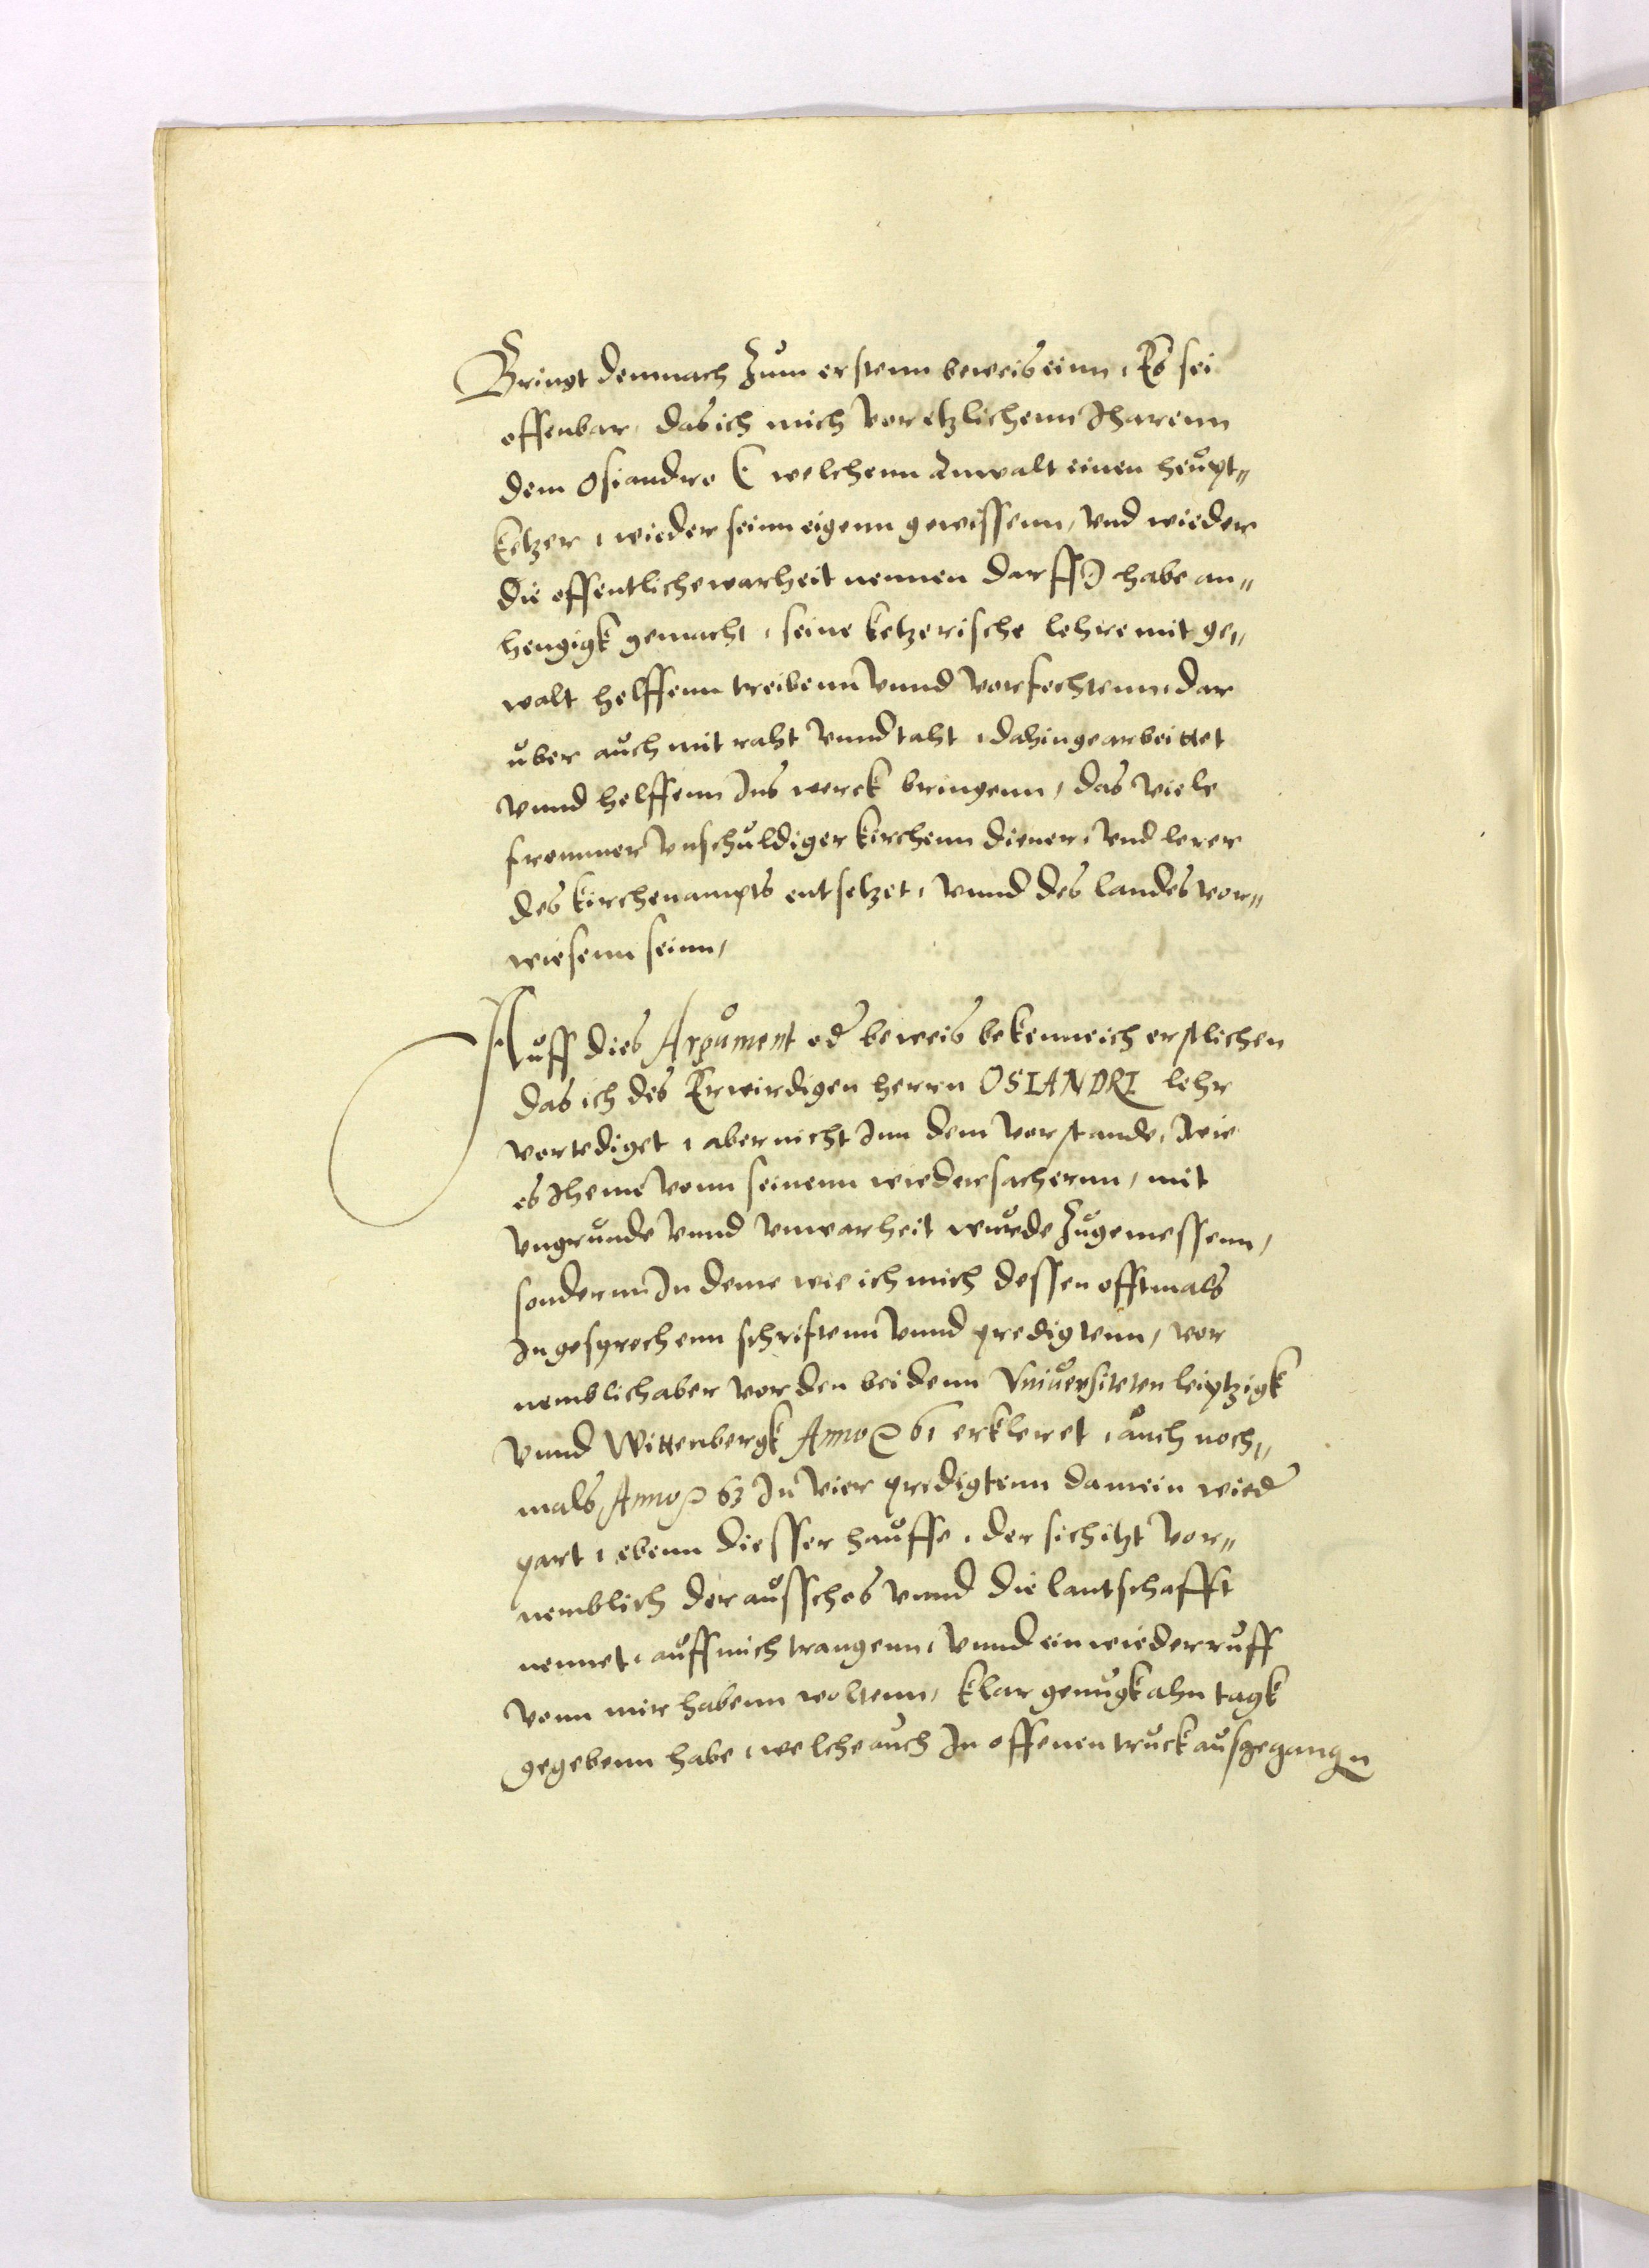 Bringt demnach Zum erstenn beweis einn, Es sei
offenbar, das ich mich vor etzlichenn Jharenn
dem Osiandro (welchenn Anwalt einen heupt-
ketzer, wieder seinn eigenn gewissenn, vnd wieder
die offentliche warheit nennen darff) habe an-
hengigk gemacht, seine ketzerische lehre mit ge-
walt helffenn treibenn vnnd vorfechtenn, dar
uber auch mit raht vnnd taht, dahin gearbeittet
vnnd helffenn Ins werck bringenn, das viele
frommer vnschuldiger kirchenn diener, vnd lerer
des kirchenampts entsetzet, vnnd des landes vor-
wiesenn seinn,
Auff dies Argument od beweis bekenne ich erstlichen
das ich des Erwirdigen herrn OSIANDRI lehr
vortediget, aber nicht Inn dem vorstande, wie
es Jheme vonn seinenn wiedersachernn, mit
vngrunde vnnd vnwarheit wurde Zugemessenn,
sondernn In deme wie ich mich dessen offtmals
In gesprechenn schrifftenn vnnd predigtenn, vor
nemblich aber vor den beidenn Vniuersiteten leiptzigk
vnnd Wittenbergk Anno 61 erkleret, auch noch-
mals Anno 63 In vier predigtenn da mein wied
part, ebenn diesser hauffe, der sich itzt vor-
nemblich der aussches vnnd die lantschafft
nennet, auff mich trangenn, vnnd ein wiederruff
vonn mir habenn woltenn, klar genugk ahn tagk
gegebenn habe, welche auch In offenen truck ausgegangn